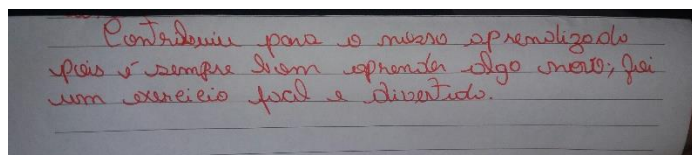 Contribuiu para o nosso aprendizado
pois é sempre bom aprender algo novo; foi
um exercicio facil e divertido.